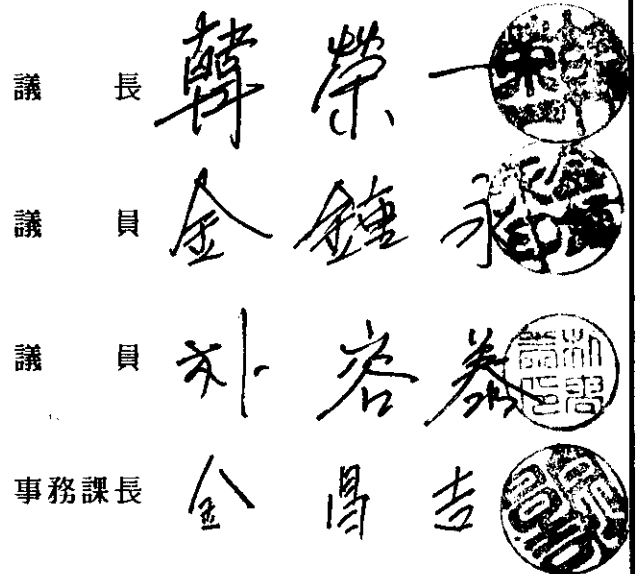 議長 韓榮一
議員 金鍾永
議員 朴容泰
事務課長 金昌吉